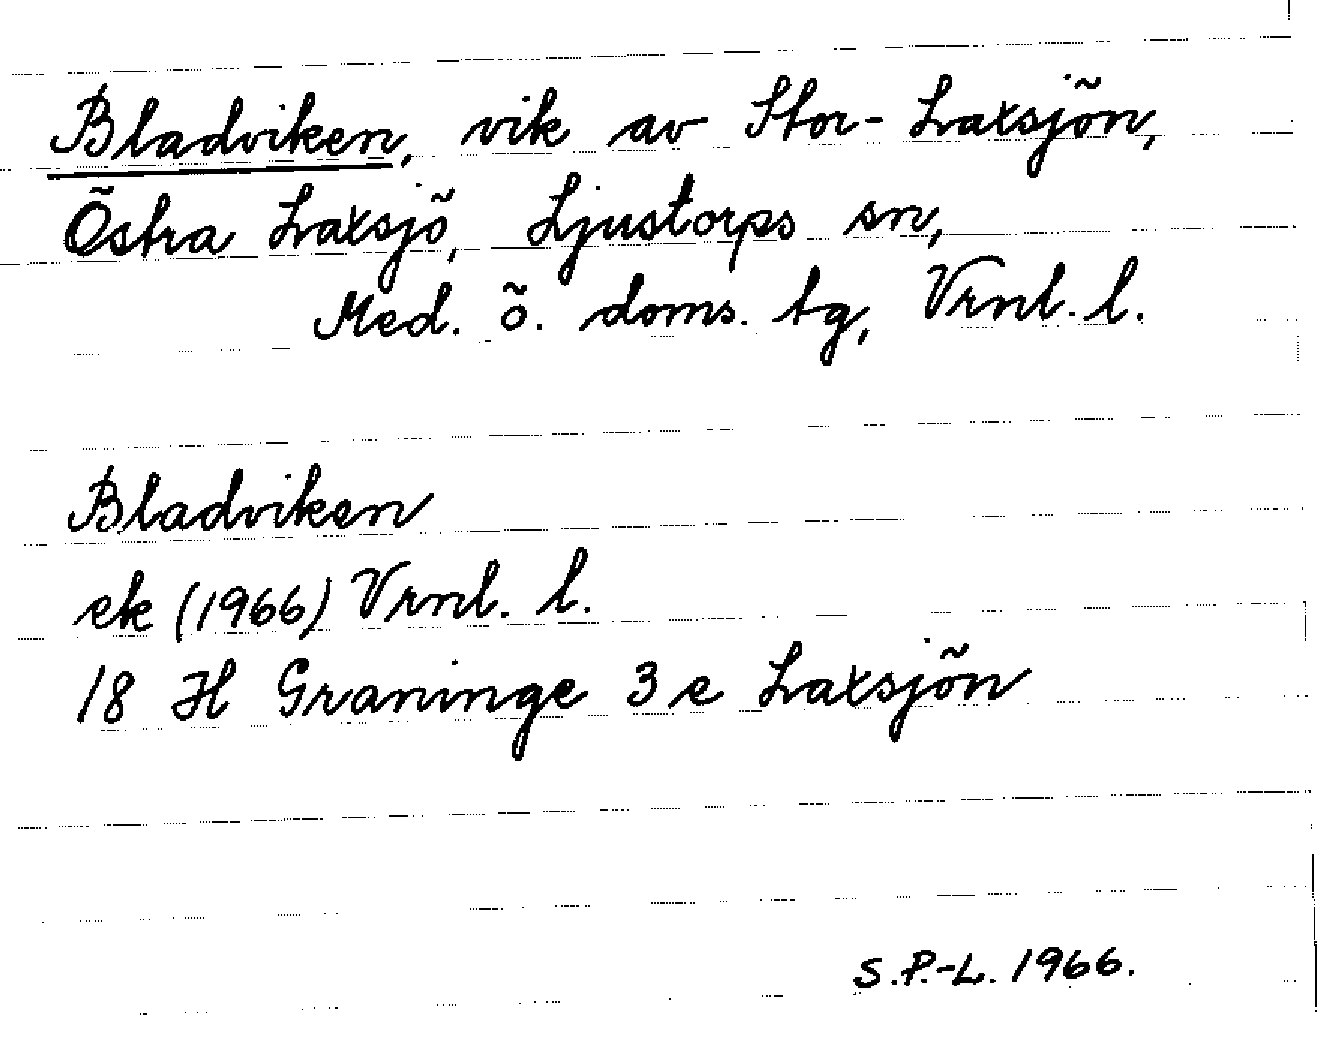 Bladviken, vik av Stor-Laxsjön,
Östra Laxsjö, Ljustorps sn,
Med. ö. doms. tg, Vrnl. l.
Bladviken
ek (1966) Vrnl. l.
18 H Graninge 3 e Laxsjön
S.P.-L. 1966.